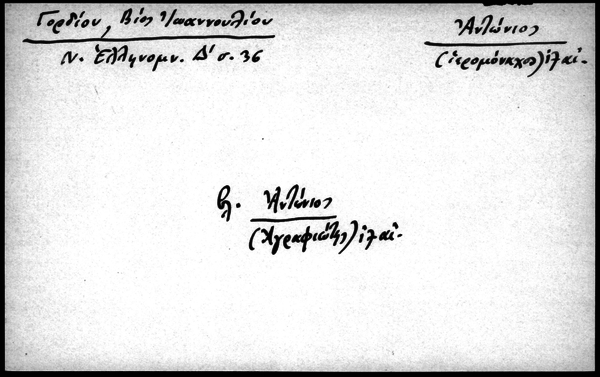 Γορδίου, Βίος Ἰωαννουλίου
Ν. Ἑλληνομν. Δ' σ. 36
Ἀντώνιος
(ἱερομόναχος) ιζ αἰ.
βλ. Ἀντώνιος
(Ἀγραφιώτης) ιζ αἰ.